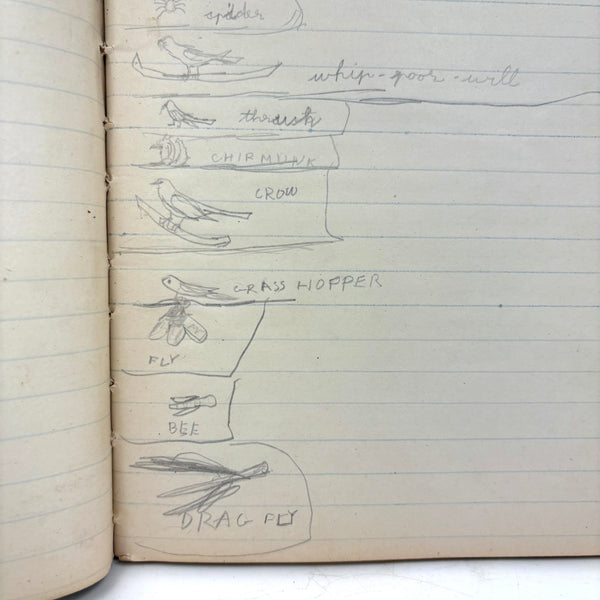 spider
whip-poor-will
thrush
CHIPMUNK
CROW
GRASS HOPPER
FLY
BEE
DRAG FLY